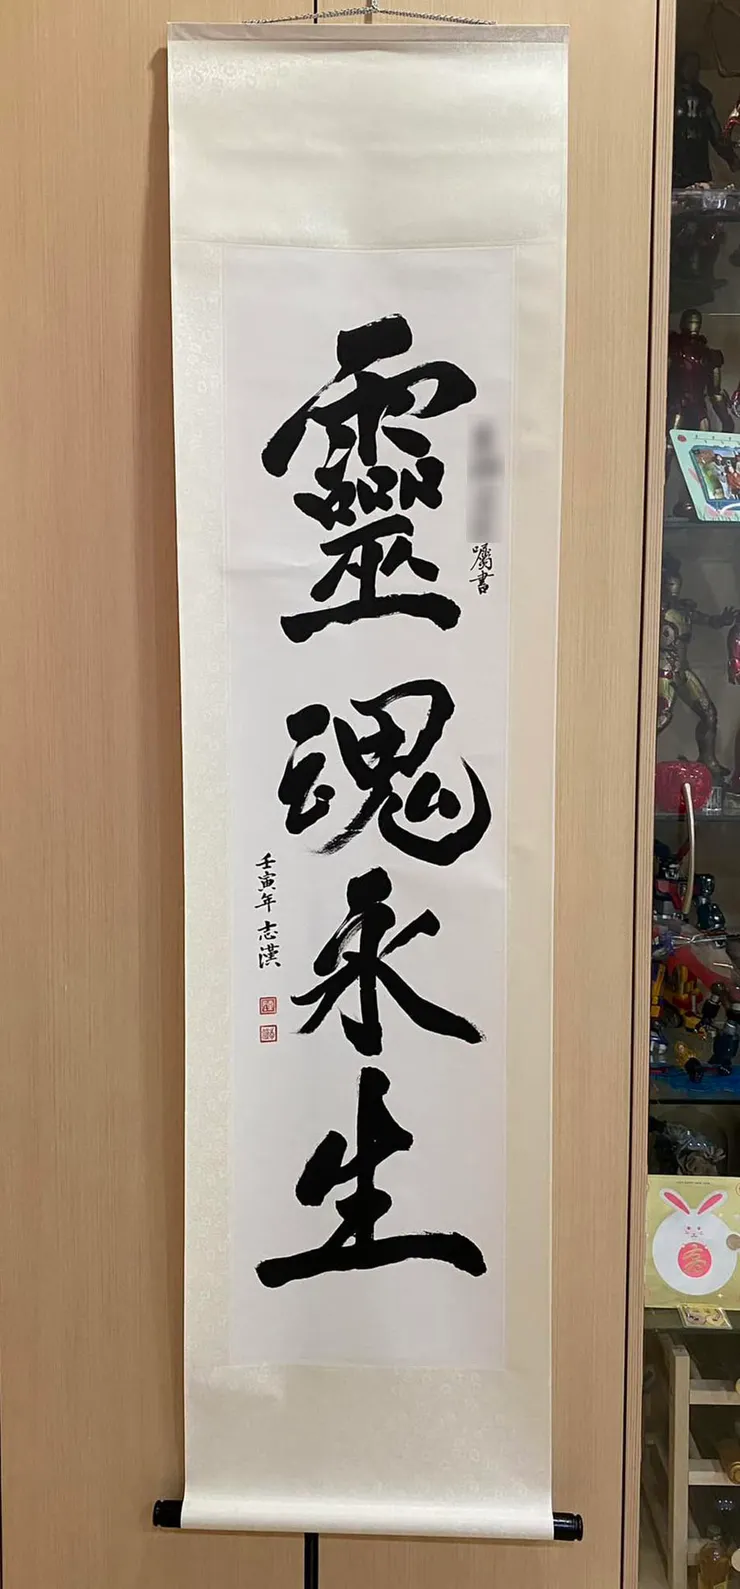 靈魂永生
囑書
壬寅年 志漢